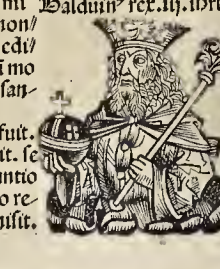 mi Balduinꝰ rex.iij.ihr
non/
edi/
i mo
san-
fuit.
it. se
untio
o re-
misit.